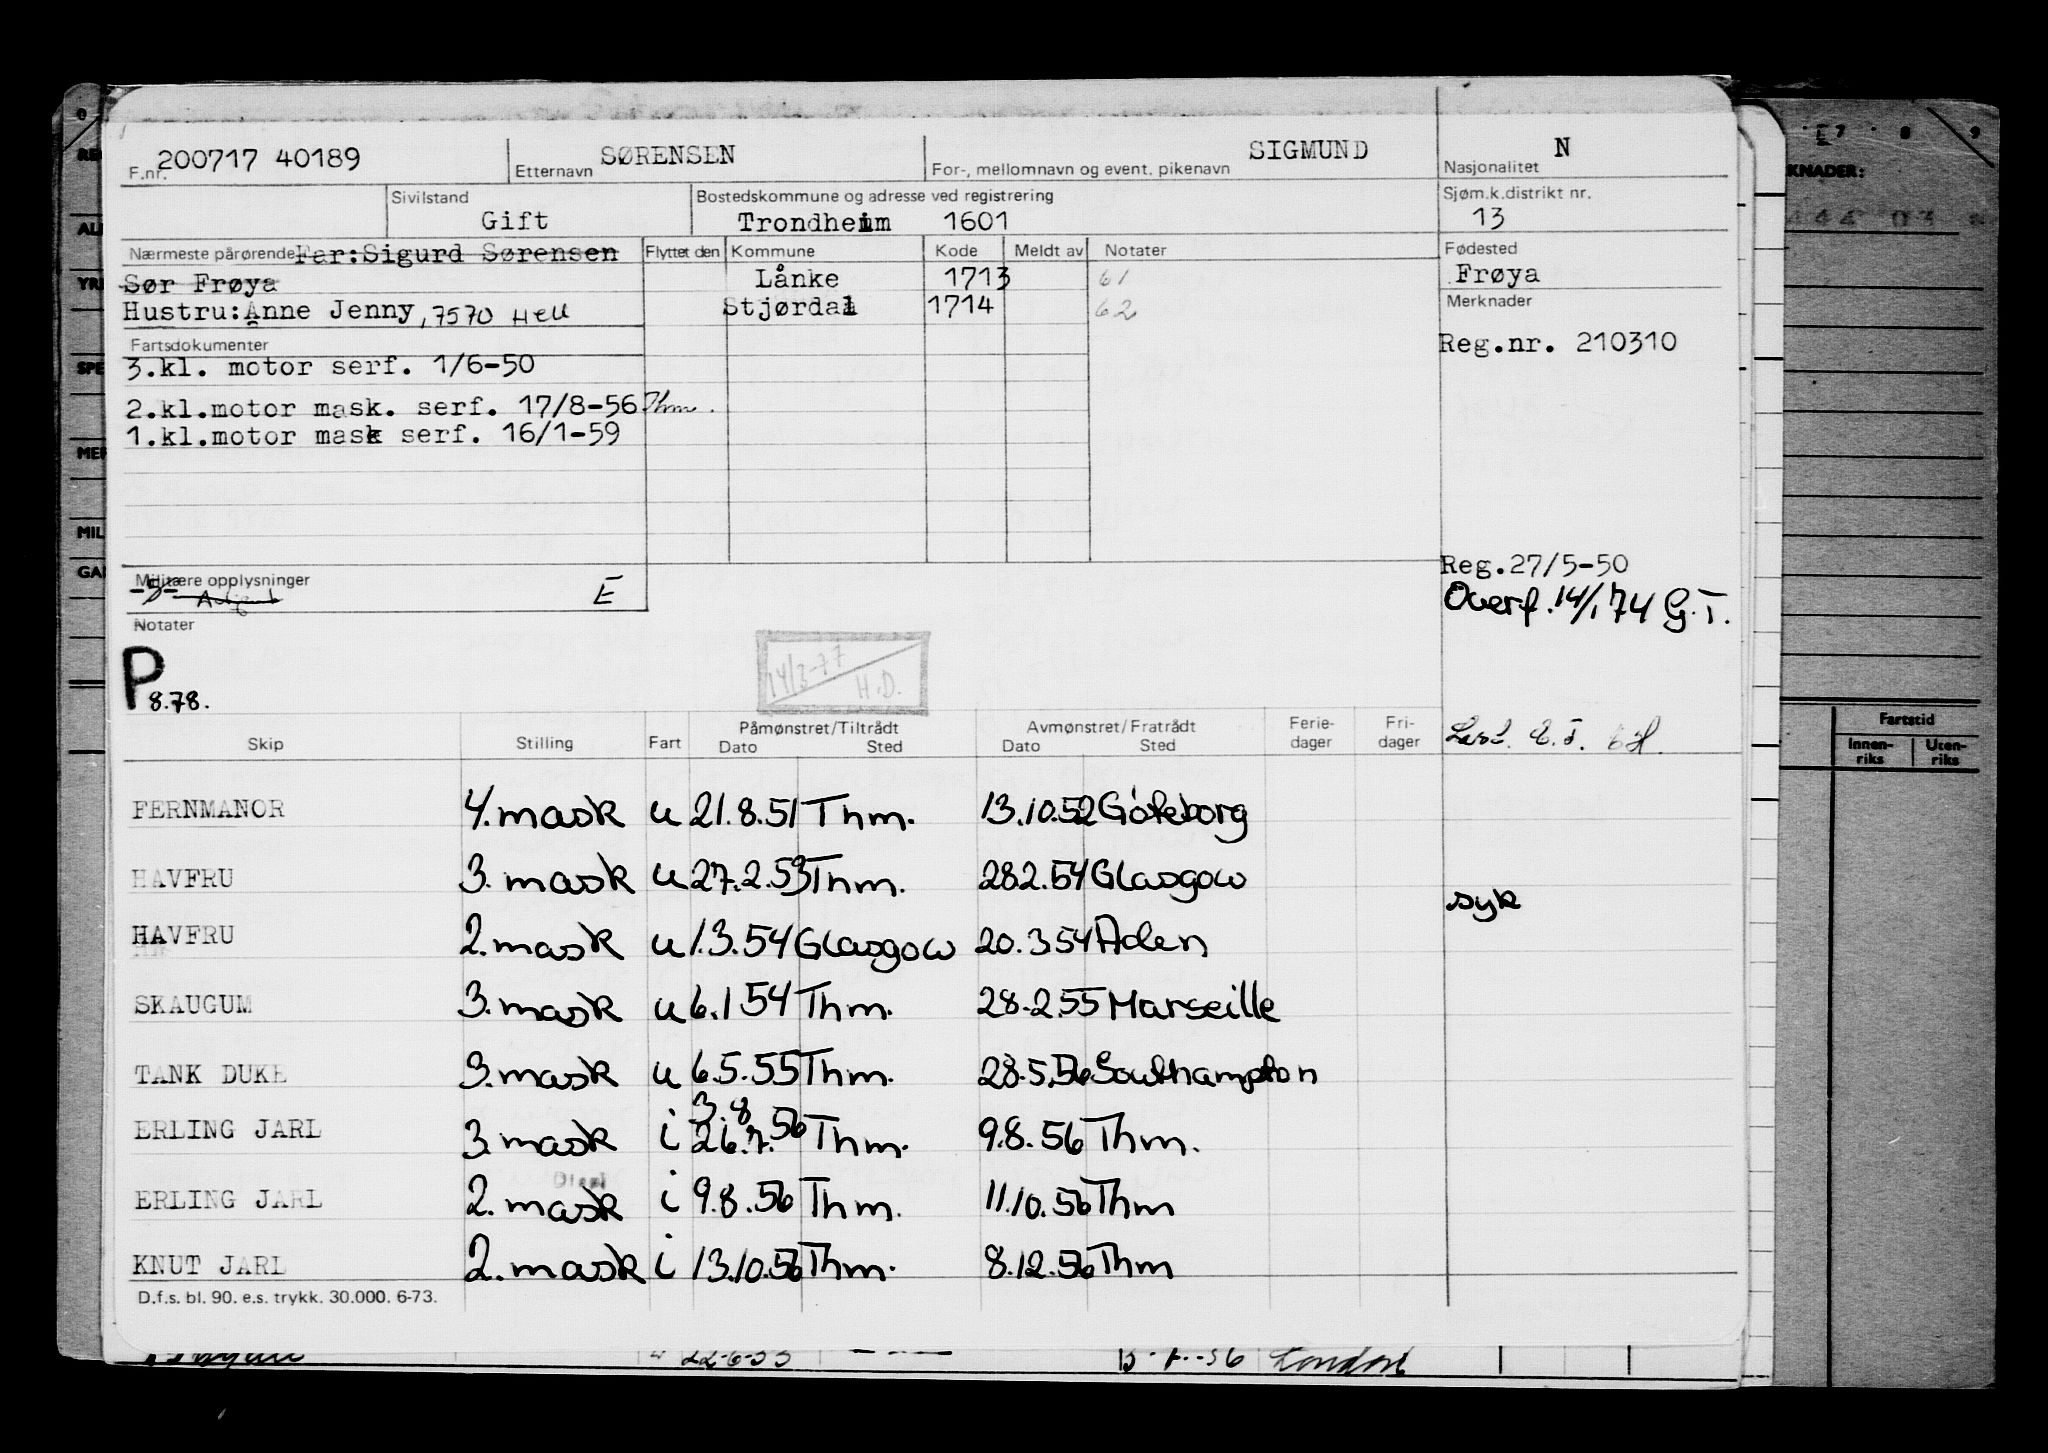 200717 40189 SØRENSEN SIGMUND N
F.nr. Etternavn For-, mellomnavn og event. pikenavn Nasjonalitet
Sivilstand Bostedskommune og adresse ved registrering Sjøm.k.distrikt nr.
Gift Trondheim 1601 13
Nærmeste pårørende Far:Sigurd Sørensen Flyttet den Kommune Kode Meldt av Notater Fødested
Sør Frøya Lånke 1713 61 Frøya
Merknader
Hustru:Anne Jenny, 7570 Hell Stjørdal 1714 62
Fartsdokumenter Reg.nr. 210310
3.kl. motor serf. 1/6-50
2.kl.motor mask. serf. 17/8-56 Thm.
1.kl.motor mask serf. 16/1-59
Reg.27/5-50
Militære opplysninger
-S- E Overf. 14/1 74 G.T.
Notater
P 8.78. 14/3-77 H.D.
Skip Stilling Fart Påmønstret/Tiltrådt Dato Sted Avmønstret/Fratrådt Dato Sted Ferie-dager Fri-dager
FERNMANOR 4. mask u 21.8.51 Thm. 13.10.52 Göteborg
HAVFRU 3. mask u 27.2.53 Thm. 28.2.54 Glasgow
syk
HAVFRU 2. mask u 1.3.54 Glasgow 20.3.54 Aden
SKAUGUM 3. mask u 6.1 54 Thm. 28.2.55 Marseille
TANK DUKE 3. mask u 6.5.55 Thm. 28.5.56 Southampton
3.8
ERLING JARL 3. mask i 26.7.56 Thm. 9.8.56 Thm.
ERLING JARL 2. mask i 9.8.56 Thm. 11.10.56 Thm
KNUT JARL 2. mask i 13.10.56 Thm. 8.12.56 Thm
D.f.s. bl. 90. e.s. trykk. 30.000. 6-73.
22-6-55 London
7 8 9
KNADER:
Fartstid
Innen-riks Uten-riks